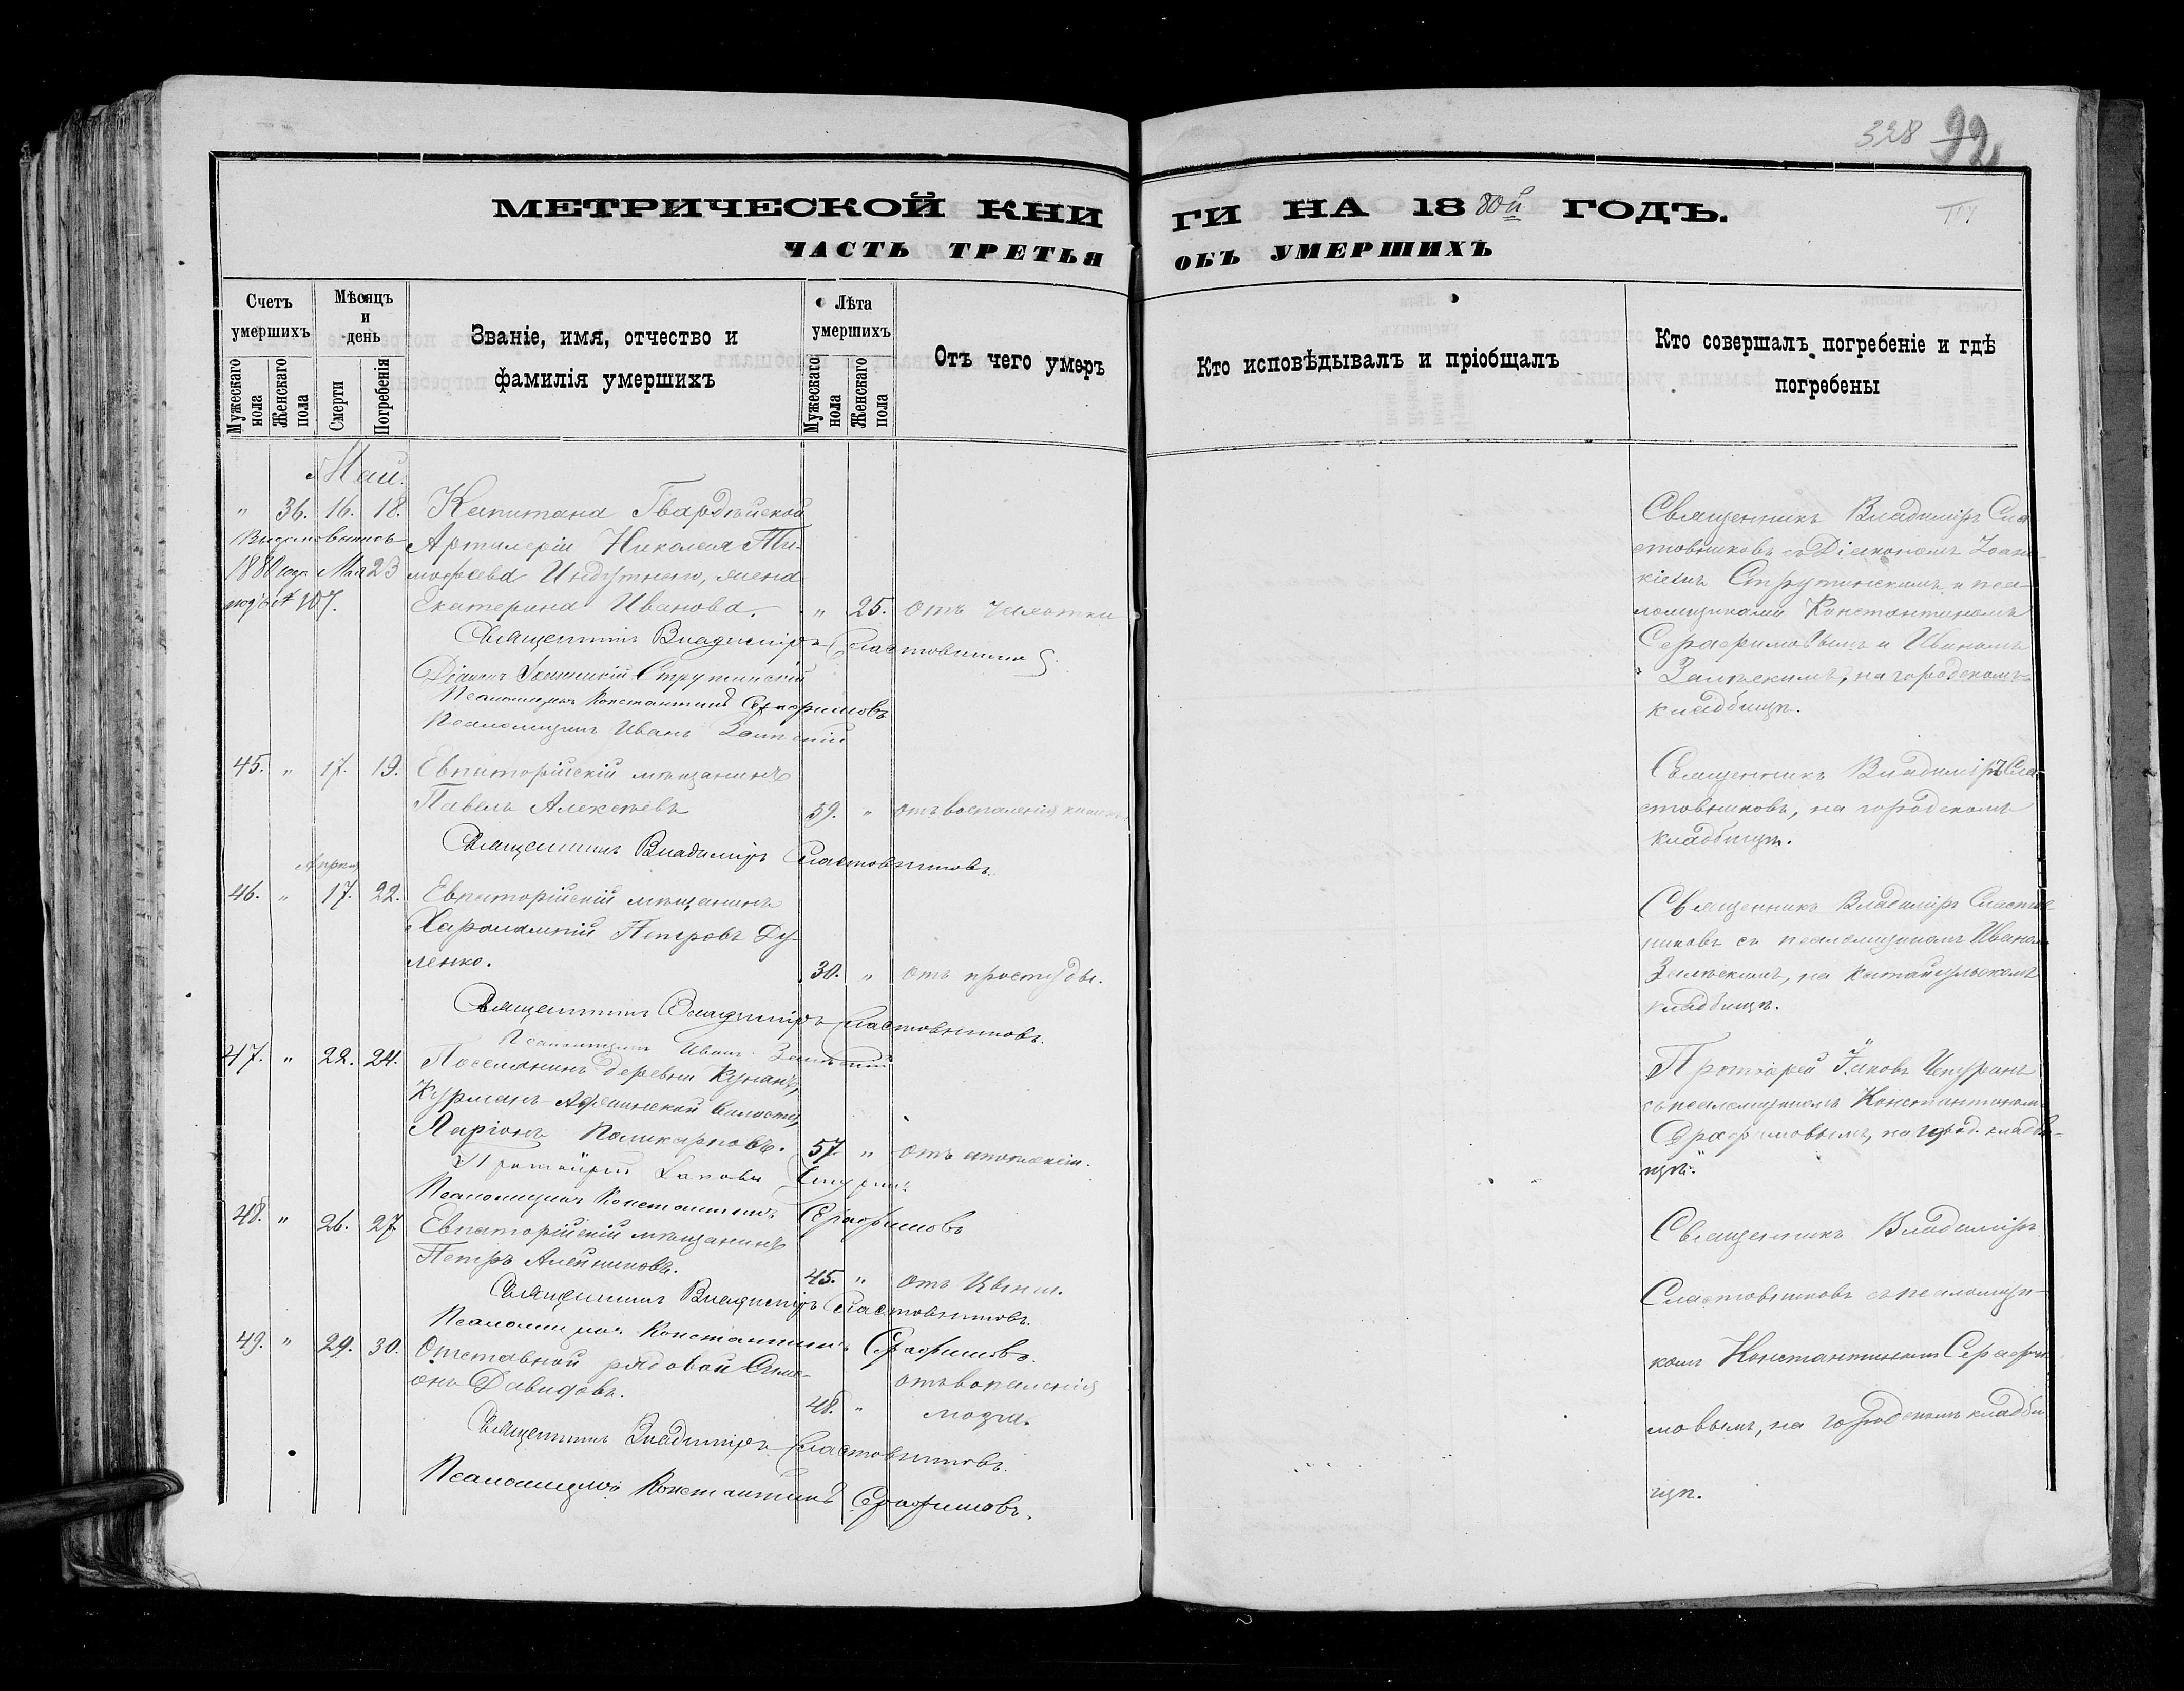 328 92
МЕТРИЧЕСКОЙ КНИ
ГИ НА 1880й ГОДЪ.
ЧАСТЬ ТРЕТЬЯ
ОБЪ УМЕРШИХЪ
Счетъ умершихъ
Мужескаго пола
Женскаго пола
Мѣсяцъ и день
Смерти
Погребенія
Званіе, имя, отчество и
фамилія умершихъ
Лѣта умершихъ
Мужескаго пола
Женскаго пола
Отъ чего умеръ
Кто исповѣдывалъ и пріобщалъ
Кто совершалъ погребеніе и гдѣ
погребены
Май.
" 36. 16. 18. Капитана Гвардѣйской
Артилеріи Николая Ти-
1880 года Мая 23 мофѣева жена
под № 107. Екатерина Иванова. " 25. Отъ чахотки
Священникъ Владиміръ Сластовниковъ
Діаконъ Іоанникій Струтинскій
Псаломщикъ Константинъ Серафимовъ
Псаломщикъ Иванъ Залѣскій
Священникъ Владиміръ Сла-
стовниковъ съ Діакономъ Іоанн-
кіемъ Струтинскимъ и пса-
ломщиками Константиномъ
Серафимовымъ и Иваномъ
Залѣскимъ, на городскомъ
кладбищѣ.
45. " 17. 19. Евпаторійскій мѣщанинъ
Павелъ Алексѣевъ 59. " отъ воспаленія
Священникъ Владиміръ Сластовниковъ.
Священникъ Владиміръ Сла-
стовниковъ, на городскомъ
кладбищѣ.
Апрѣля
46. " 17. 22. Евпаторійскій мѣщанинъ
Харалампій Петровъ Ду-
ленко. 30. " Отъ простуды.
Священникъ Владиміръ Сластовниковъ.
Псаломщикъ Иванъ Залѣскій
Священникъ Владиміръ Сластов-
никовъ съ псаломщикомъ Иваномъ
Залѣскимъ, на
кладбищѣ.
47. " 22. 24. Поселянинъ деревни
Курманъ волости,
Ларіонъ Поликарповъ. 57. " Отъ
Протоіерей Іаковъ Чепуринъ
Псаломщикъ Константинъ Серафимовъ
Протоіерей Іаковъ Чепуринъ
съ псаломщикомъ Константиномъ
Серафимовымъ, на город. кладби-
щѣ."
48. " 26. 27. Евпаторійскій мѣщанинъ
Петръ Алейниковъ. 45. " отъ
Священникъ Владиміръ Сластовниковъ.
Псаломщикъ Константинъ Серафимовъ.
Священникъ Владиміръ
Сластовниковъ съ псаломщи-
комъ Константиномъ Серафи-
мовымъ, на городскомъ кладби-
щѣ.
49. " 29. 30. Отставной рядовой Симе-
онъ Давидовъ. отъ воспаленія
48. " мозга.
Священникъ Владиміръ Сластовниковъ.
Псаломщикъ Константинъ Серафимовъ.